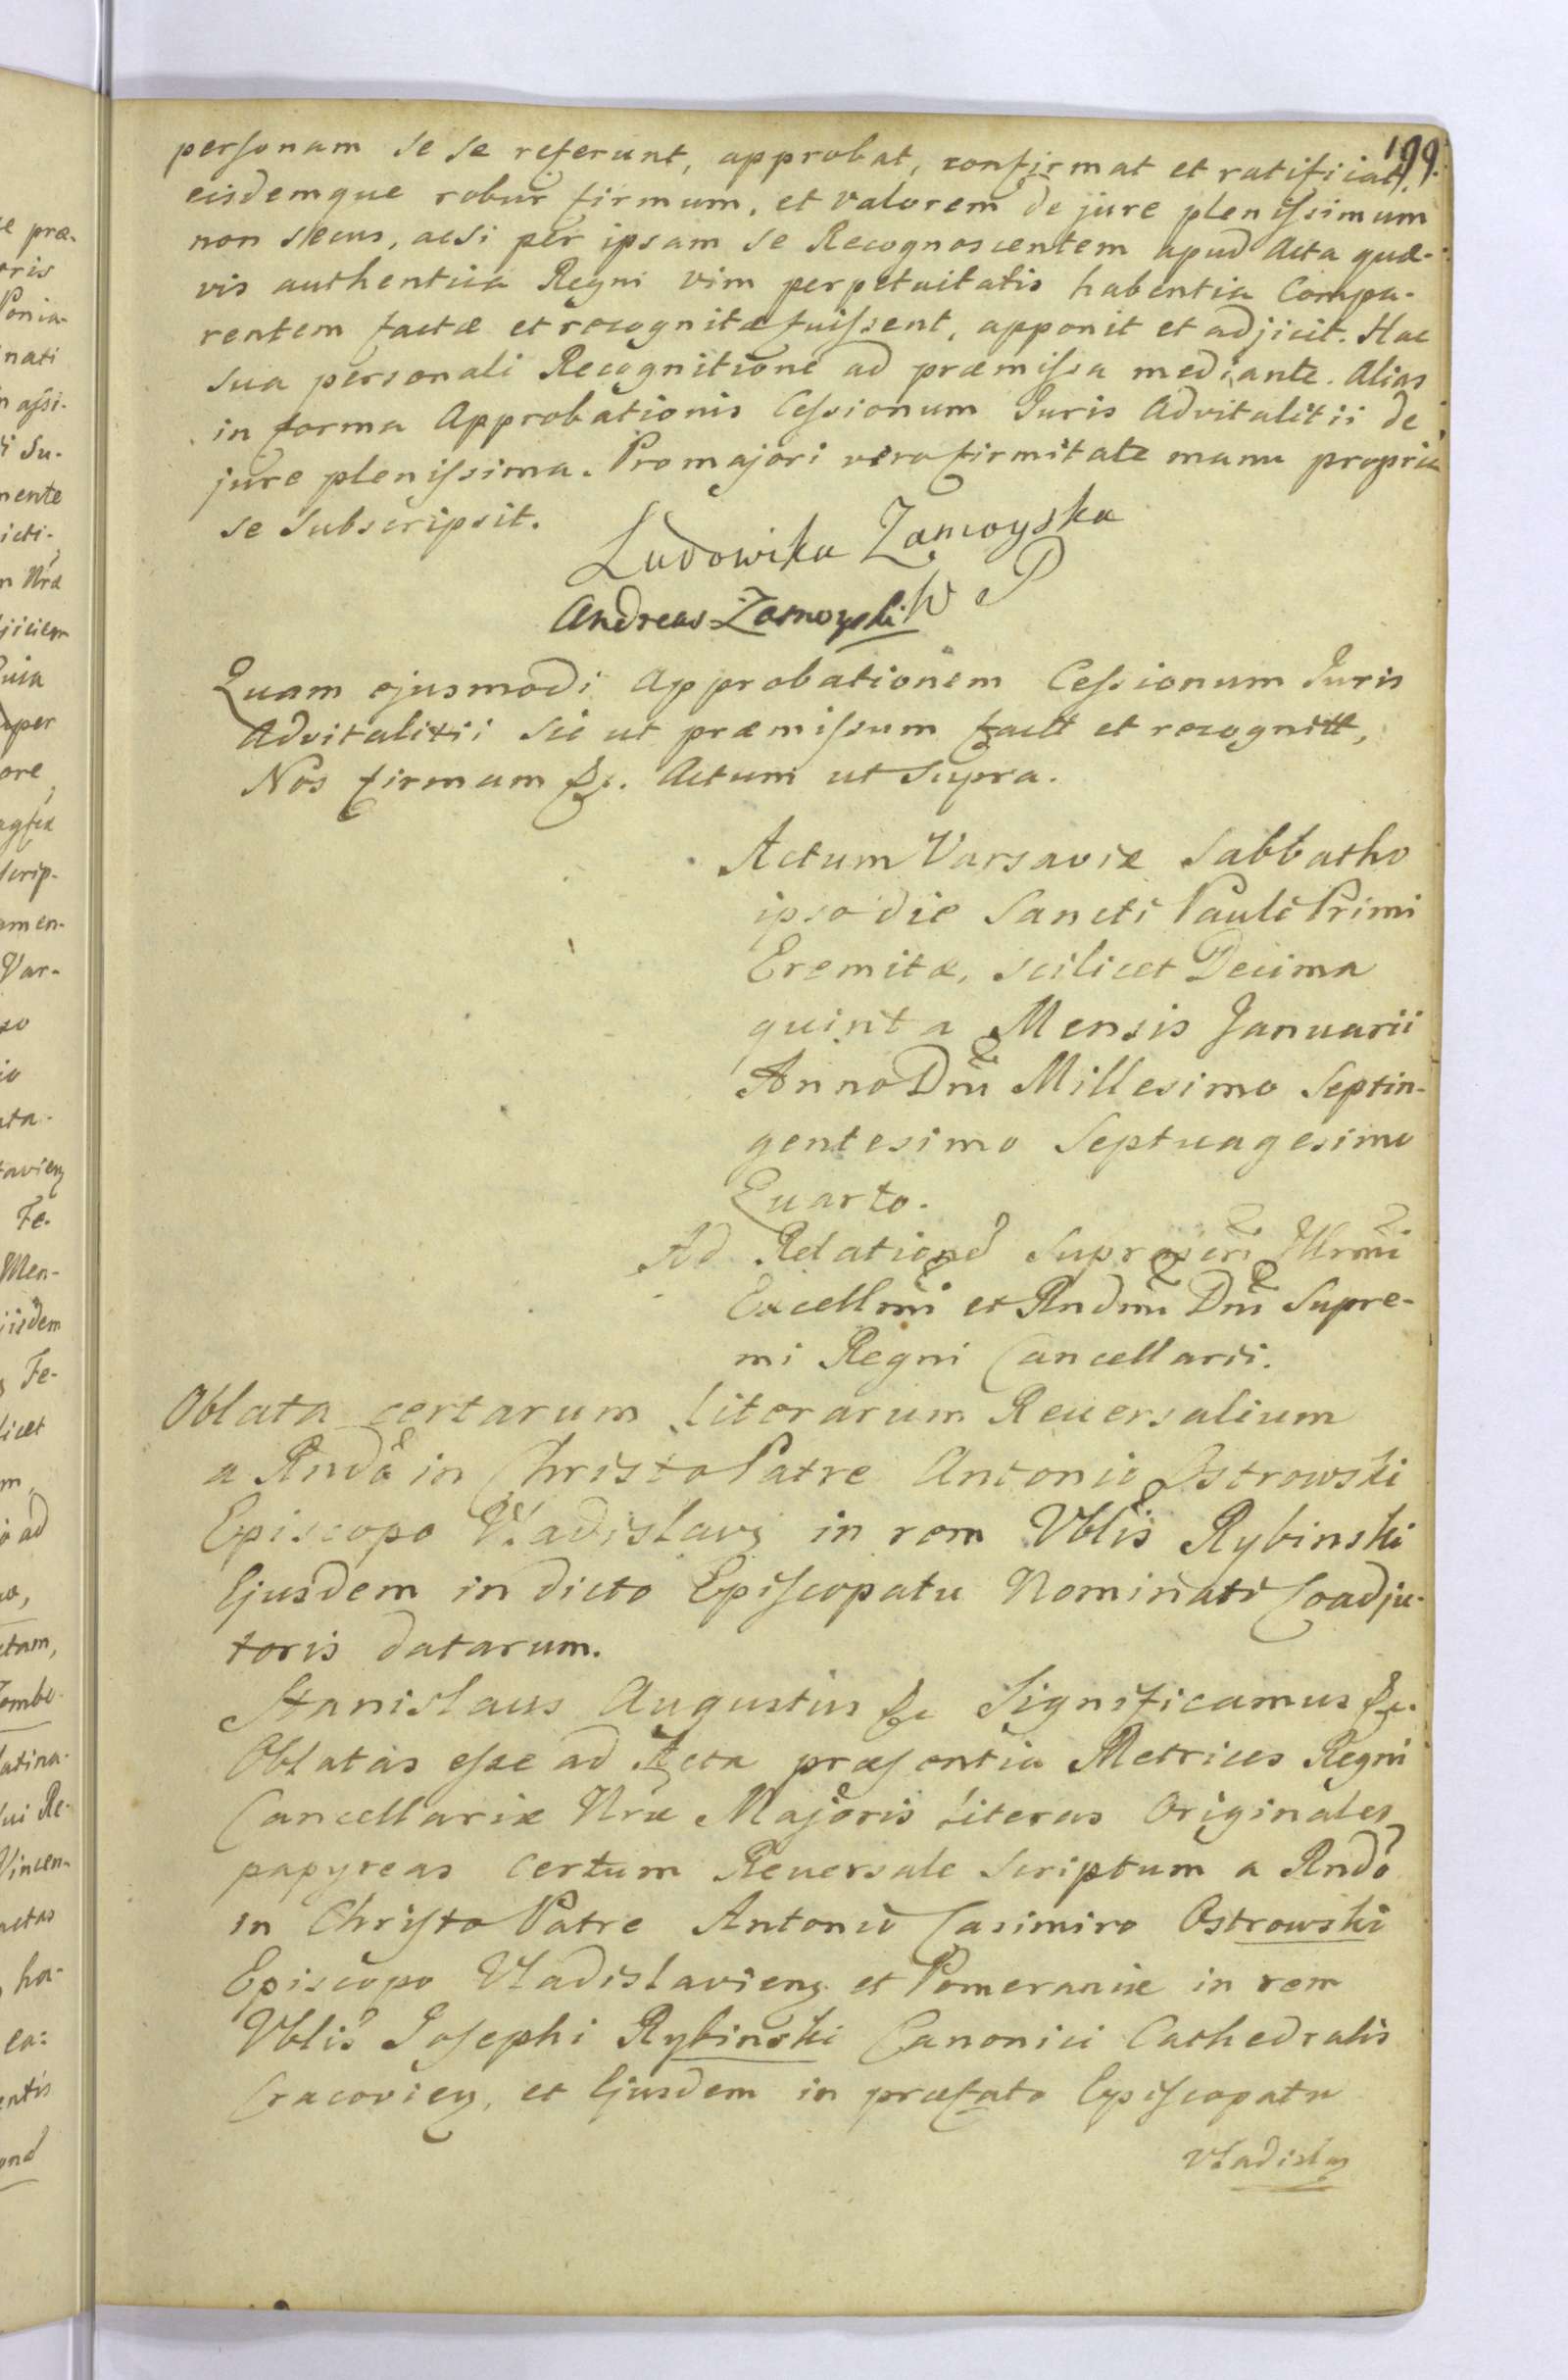 199.
personam se se referunt, approbat, confirmat et ratificiat,
eisdemque robur firmum, et valorem de jure plenissimum
non secus, acsi per ipsam se Recognoscentem apud Acta quæ-
vis authentica Regni vim perpetuitatis habentia Compa-
rentem factæ et recognitæ fuissent, apponit et adjicit. Hac
sua personali Recognitione ad præmissa mediante. Alias
in forma Approbationis Cessionum Juris Advitalitii de
jure plenissima. Pro majori vero firmitate manu propria
se subscripsit.
Ludowika Zamoyska
Andreas Zamoyski W P
Quam ejusmodi Approbationem Cessionum Juris
Advitalitii sic ut præmissum factt et recognitt,
Nos firmam &c. Actum ut supra.
Actum Varsaviæ Sabbatho
ipso die Sancti Pauli Primi
Eremitæ, scilicet Decima
quinta Mensis Januarii
Anno Dni Millesimo Septin-
gentesimo Septuagesimo
Quarto.
Ad Relationē suprascri Illrmi
Excellmi et Rndmi Dni Supre-
mi Regni Cancellarii.
Oblata certarum Literarum Reversalium
a Rndo in Christo Patre Antonio Ostrowski
Episcopo Vladislavẏ in rem Vblis Rybinski
Ejusdem in dicto Episcopatu Nominati Coadju-
toris datarum.
Stanislaus Augustus &c Significamus &c.
Oblatas esse ad Acta præsentia Metrices Regni
Cancellariæ Nræ Majoris Literas Originales
papyreas certum Reversale scriptum a Rndo
in Christo Patre Antonio Casimiro Ostrowski
Episcopo Vladislavienʒ et Pomeraniæ in rem
Vblis Josephi Rybinski Canonici Cathedralis
Cracovienʒ, et Ejusdem in præfato Episcopatu
Vladislaʒ